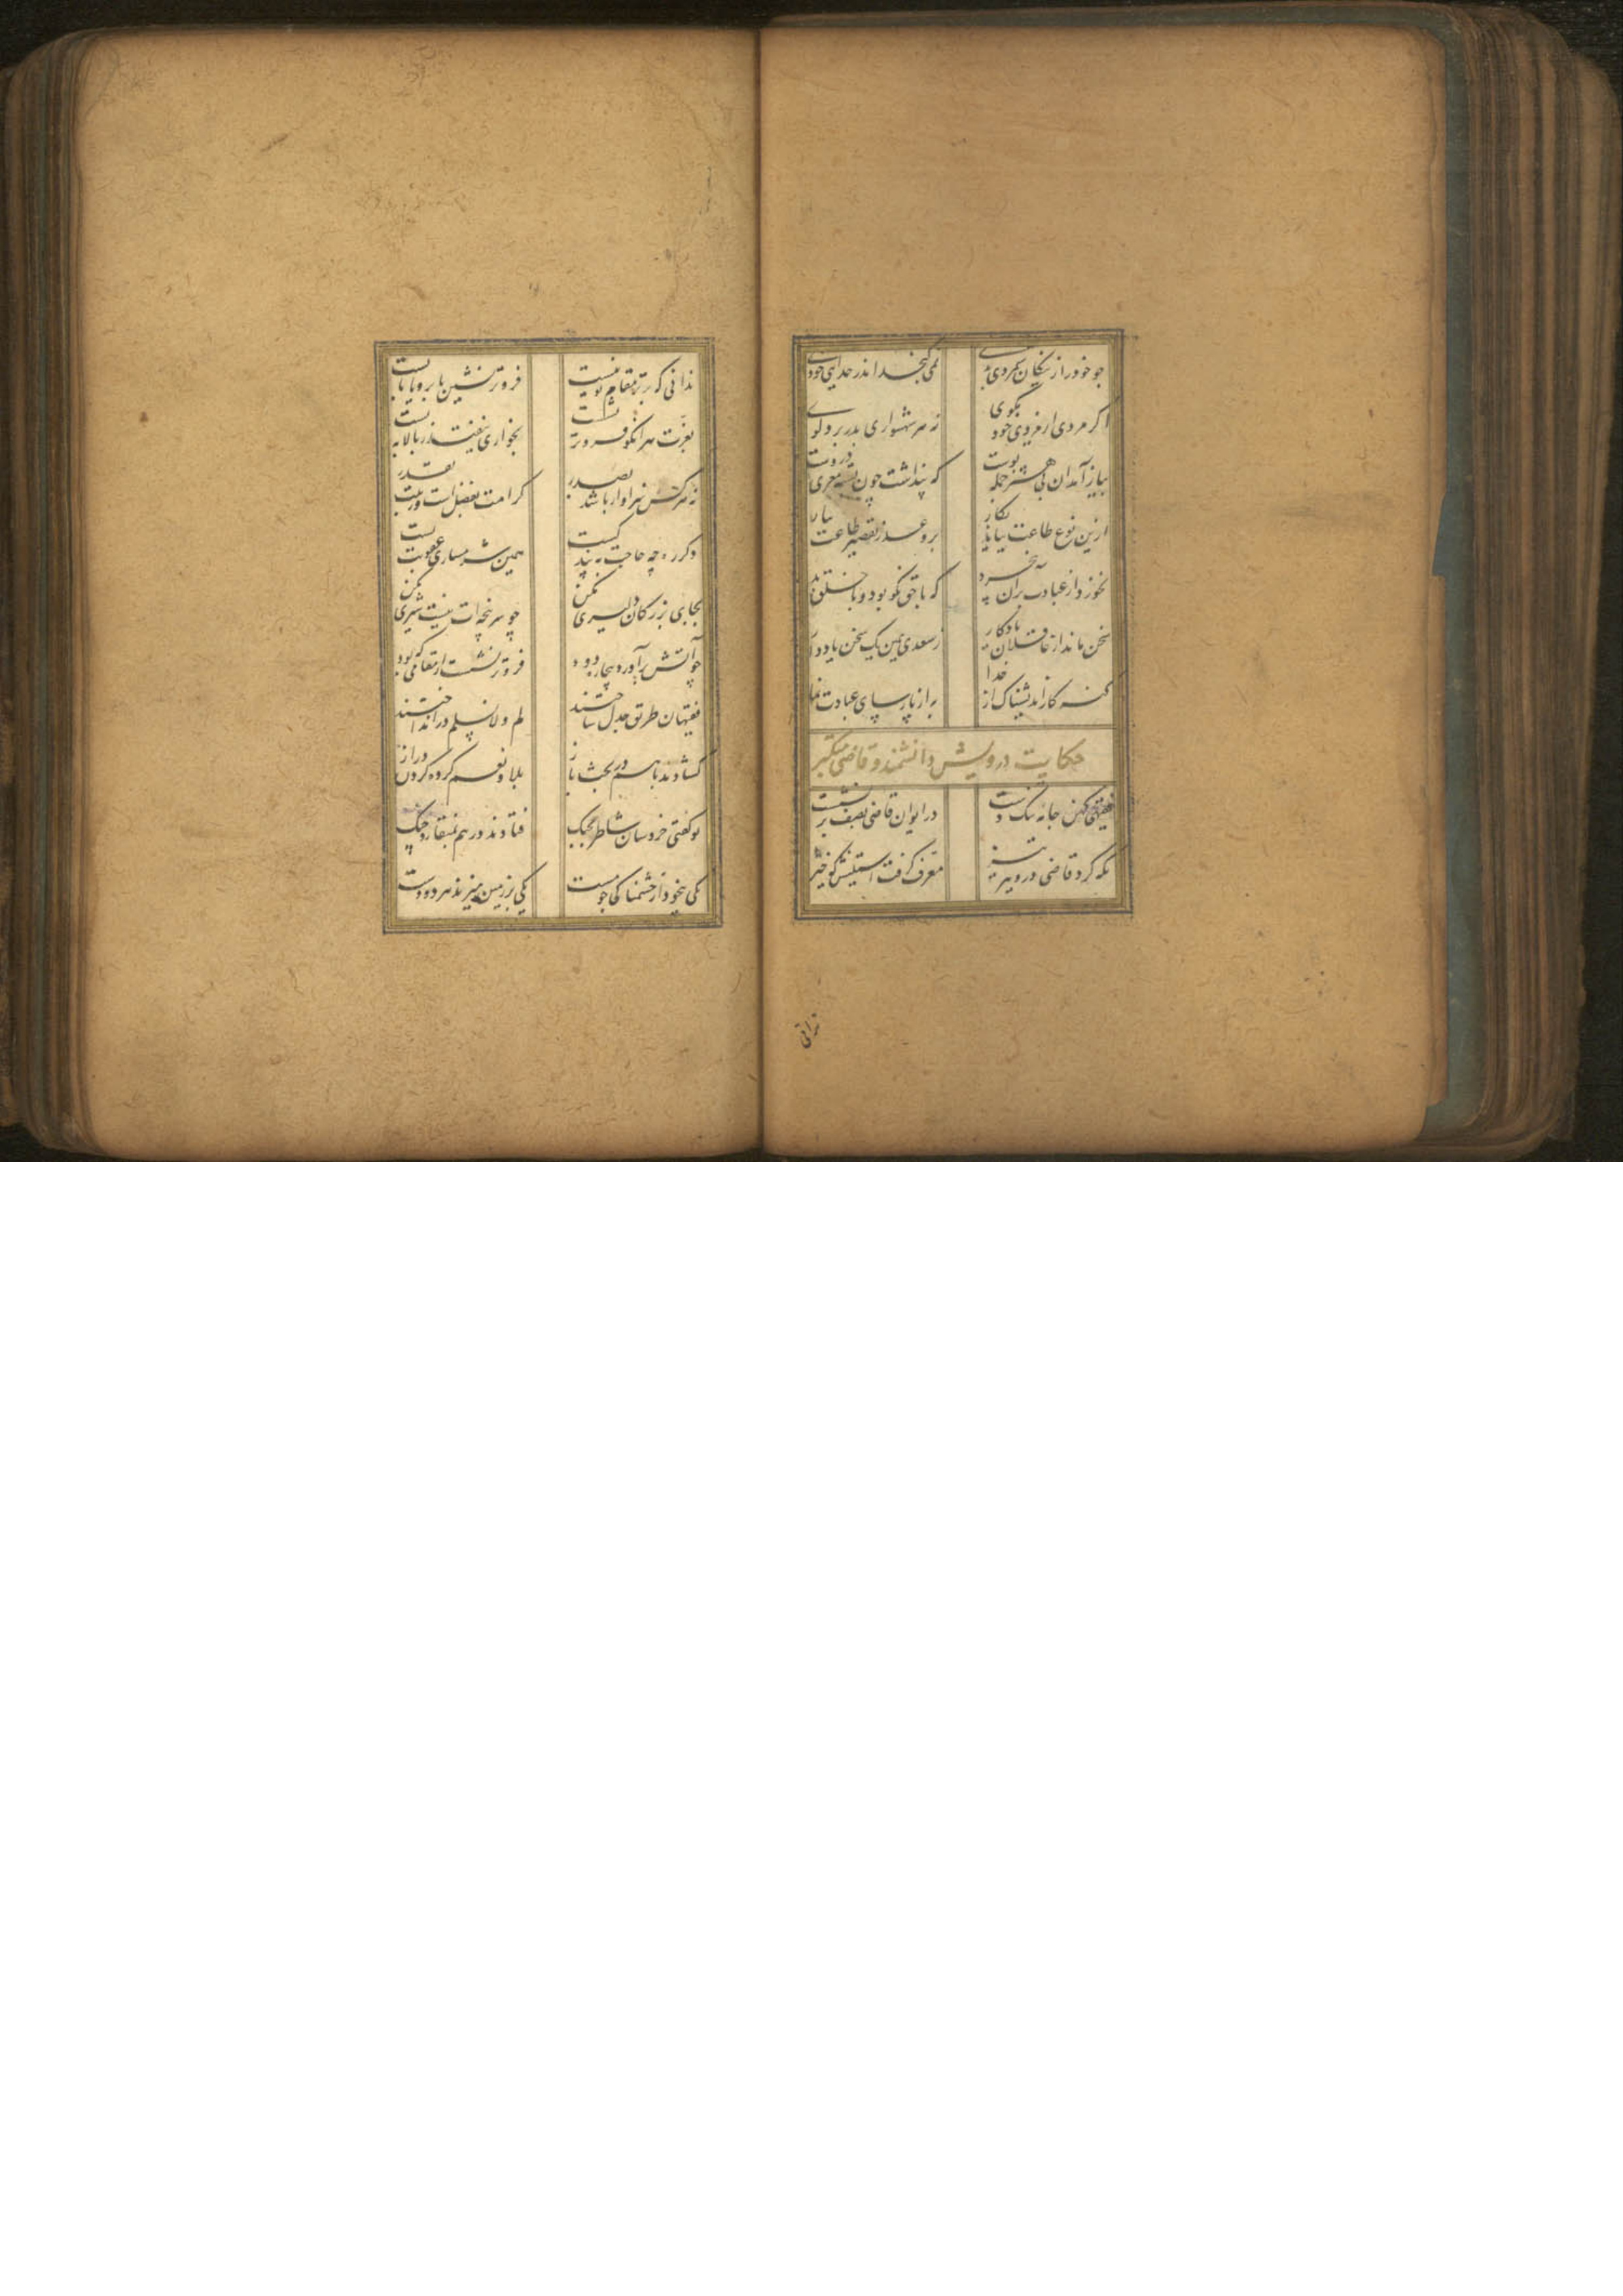 چو خود را ز نیکان شمردی بدی
نمی گنجد اندر خدایی خودی
اگر مردی از مردی خود مگوی
نه هر شهسواری بدر برد گوی
پیاز آمد آن بی هنر جمله پوست
که پنداشت چون پسته مغزی دروست
ازین نوع طاعت نیاید بکار
برو عذر تقصیر طاعت بیار
نخورد از عبادت بر آن بی خرد
که با حق نکو بود و با خلق بد
سخن ماند از عاقلان یادگار
ز سعدی همین یک سخن یاد دار
گنه کار اندیشناک از خدا
به از پارسای عبادت نما
حکایت درویش دانشمند و قاضی متکبر
فقیهی کهن جامه تنگ دست
در ایوان قاضی بصف بر نشست
نگه کرد قاضی درو تیز تیز
معرف گرفت آستینش که خیز
ندانی
ندانی که برتر مقام تو نیست
فروتر نشین یا برو یا بایست
بعزت هر آنکو فروتر نشست
بخواری نیفتد ز بالا به پست
نه هر کس سزاوار باشد بصدر
کرامت بفضل است و رتبت بقدر
دگر ره چه حاجت به پند کسیت
همین شرمساری عقوبت بست
بجای بزرگان دلیری مکن
چو سرپنجه ات نیست شیری مکن
چو آتش برآورد بیچاره دود
فروتر نشست از مقامی که بود
فقیهان طریق جدل ساختند
لم و لا نسلم در انداختند
گشادند با هم در بحث باز
بلا و نعم کرده گردن دراز
تو گفتی خروسان شاطر بجنگ
فتادند در هم بمنقار و چنگ
یکی بیخود از خشمناکی چو مست
یکی بر زمین میزند هر دو دست